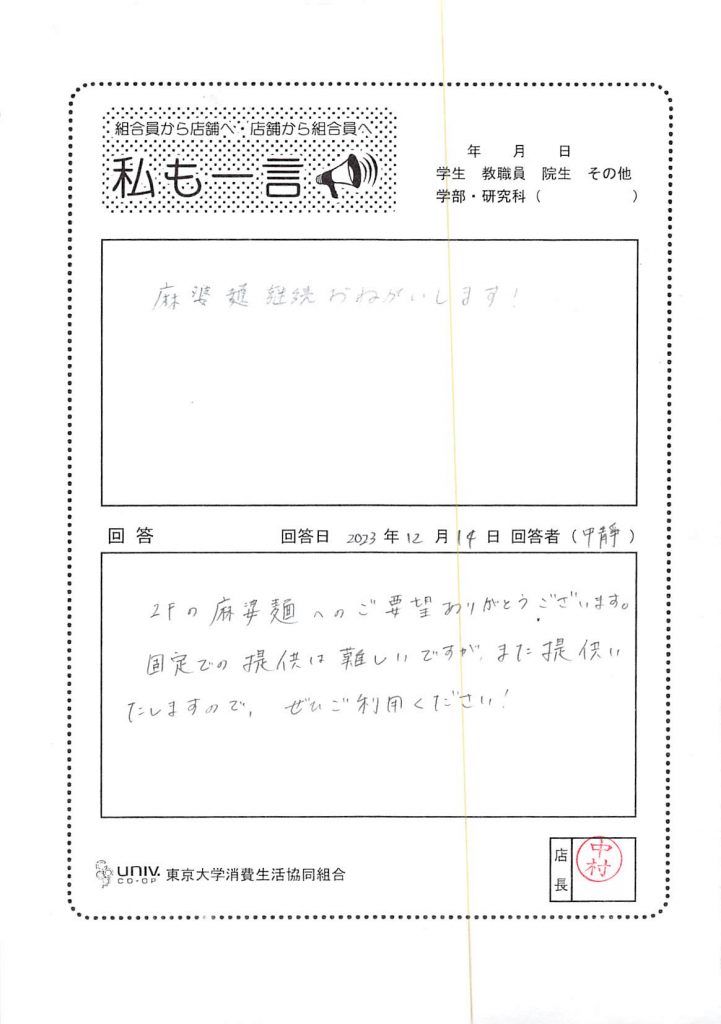 組合員から店舗へ・店舗から組合員へ
私も一言
年 月 日
学生 教職員 院生 その他
学部・研究科（ ）
麻婆麺継続おねがいします！
回答 回答日 2023年12月14日 回答者（中静）
2Fの麻婆麺へのご要望ありがとうございます。
固定での提供は難しいですが、また提供い
たしますので、ぜひご利用ください！
店長
中村
UNIV.
CO-OP
東京大学消費生活協同組合